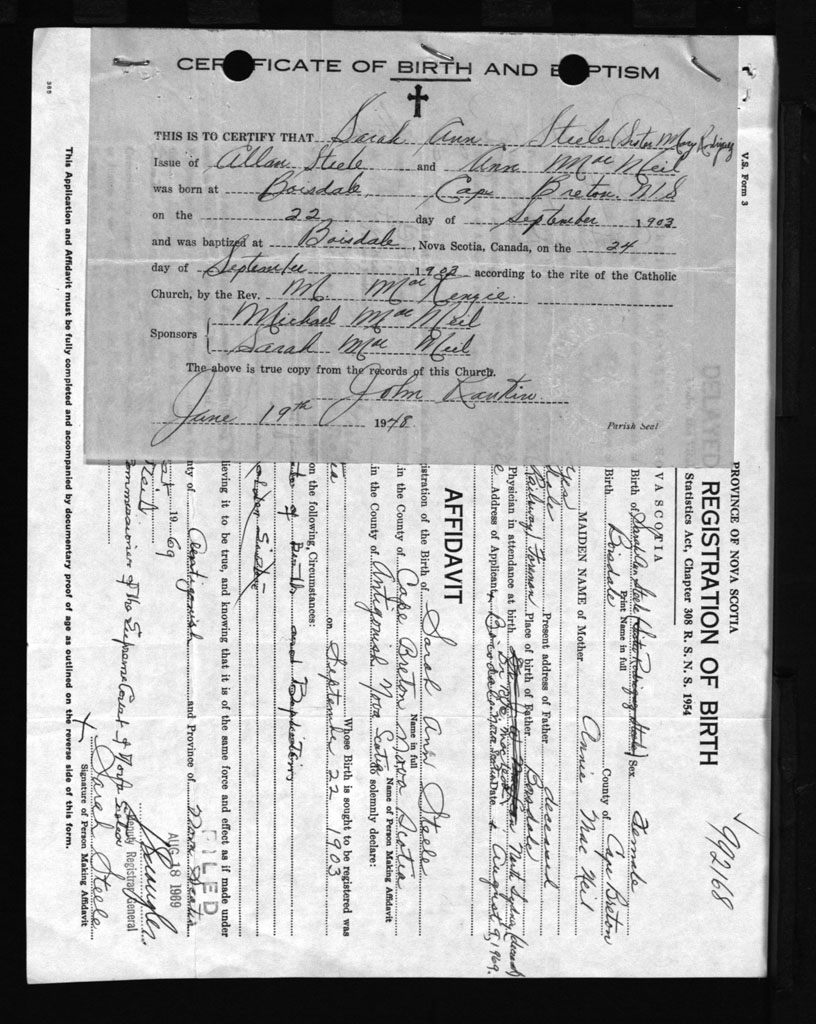 CERTIFICATE OF BIRTH AND BAPTISM
THIS IS TO CERTIFY THAT Sarah Ann Steele (Sister Mary Rodriguez
Issue of Allan Steele and Ann Mac Neil
was born at Boisdale Cape Breton N.S
on the 22 day of September 1903
and was baptized at Boisdale, Nova Scotia, Canada, on the 24
day of September 1903 according to the rite of the Catholic
Church, by the Rev. M. MacKenzie
Sponsors Michael Mac Neil
Sarah Mac Neil
The above is true copy from the records of this Church.
John Rankin
June 19th 1948
Parish Seal
V.S. Form 3
DELAYED
PROVINCE OF NOVA SCOTIA
REGISTRATION OF BIRTH
Statistics Act, Chapter 308 R. S. N. S. 1954
992168
VA SCOTIA
Birth of Sarah Ann Steele (Sister Rodriguez Steele) Sex Female
Print Name in full
Birth Boisdale County of Cape Breton
MAIDEN NAME of Mother Annie Mac Neil
yes
Present address of Father deceased
Railway Foreman Place of birth of Father Boisdale
Physician in attendance at birth North Sydney
Address of Applicant Boisdale Date August 9, 1969.
AFFIDAVIT
istration of the Birth of Sarah Ann Steele
Name in full
in the County of Cape Breton Nova Scotia
Name of Person Making Affidavit
in the County of Antigonish Nova Scotia solemnly declare:
Whose Birth is sought to be registered was
on September 22 1903
on the following Circumstances:
of Birth and Baptism
lieving it to be true, and knowing that it is of the same force and effect as if made under
nty of Antigonish and Province of Nova Scotia
1969
FILED
AUG 18 1969
Deputy Registrar General
ommissioner of the Supreme Court of Nova Scotia
x Sarah Steele
Signature of Person Making Affidavit
This Application and Affidavit must be fully completed and accompanied by documentary proof of age as outlined on the reverse side of this form.